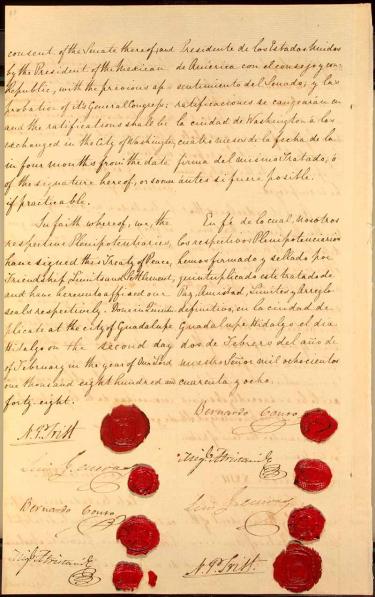 consent of the Senate thereof; and
by the President of the Mexican
Republic, with the previous ap-
probation of its General Congress;
and the ratifications shall be
exchanged in the City of Washington,
in four months from the date
of the signature hereof, or sooner
if practicable.
In faith whereof, we, the
respective Plenipotentiaries,
have signed this Treaty of Peace,
Friendship, Limits and Settlement,
and have hereunto affixed our
seals respectively. Done in Quintu-
plicate at the city of Guadalupe
Hidalgo on the second day
of February in the year of Our Lord
one thousand eight hundred and
forty-eight.
N. P. Trist
Luis G. Cuevas
Bernardo Couto
Migl. Atristain
Presidente de los Estados Unidos
de America con el consejo y con-
sentimiento del Senado; y las
ratificaciones se cangearán en
la ciudad de Washington a los
cuatro meses de la fecha de la
firma del mismo Tratado, ó
antes si fuere posible.
En fé de lo cual, nosotros
los respectivos Plenipotenciarios
hemos firmado y sellado por
quintuplicado este tratado de
Paz, Amistad, Limites y Arreglo
definitivo, en la ciudad de
Guadalupe Hidalgo el dia
dos de Febrero del año de
nuestro Señor mil ochocientos
cuarenta y ocho.
Bernardo Couto
Migl. Atristain
Luis G. Cuevas
N. P. Trist